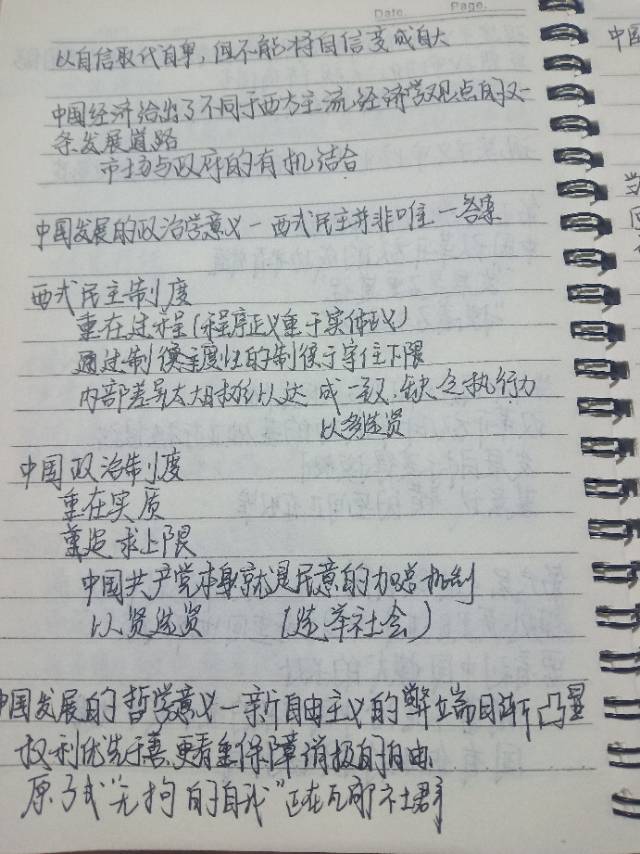 Date.    Page.
以自信取代自卑，但不能将自信变成自大
中国经济给出了不同于西方主流经济学观点的又一
条发展道路
市场与政府的有机结合
中国发展的政治学意义—西式民主并非唯一答案
西式民主制度
重在过程(程序正义重于实体正义)
通过制度性的制衡守住下限
内部差异太大难以达成一致，缺乏执行力
以多选贤
中国政治制度
重在实质
重追求上限
中国共产党本身就是民意的加总机制
以贤选贤    (选举社会)
中国发展的哲学意义—新自由主义的弊端日渐凸显
权利优先于善，更看重保障消极的自由
原子式"无拘的自我"正在瓦解社群
中国